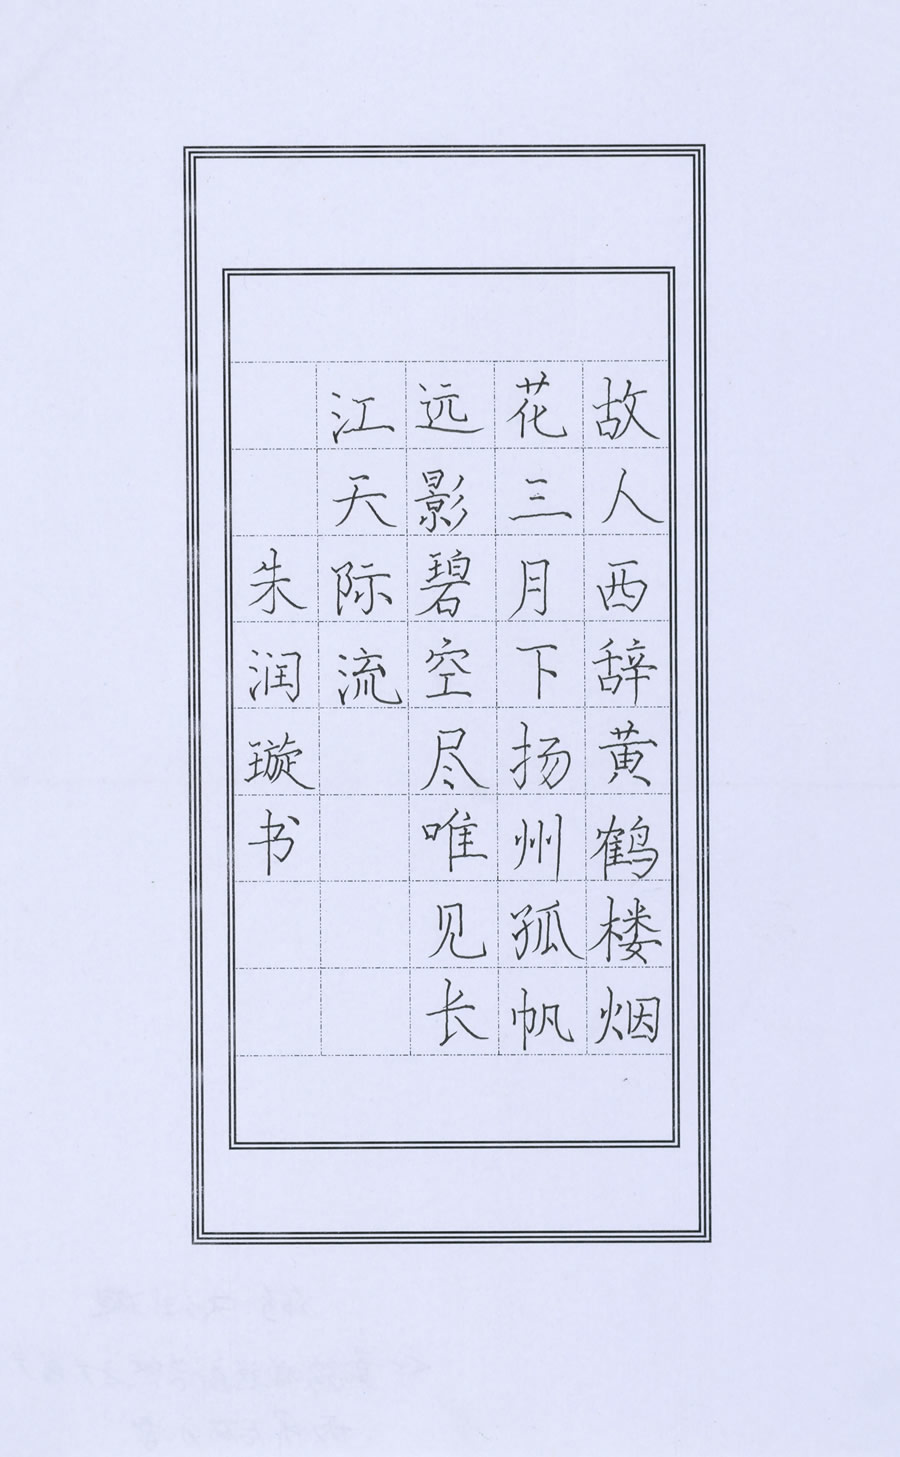 故人西辞黄鹤楼烟
花三月下扬州孤帆
远影碧空尽唯见长
江天际流
朱润璇书